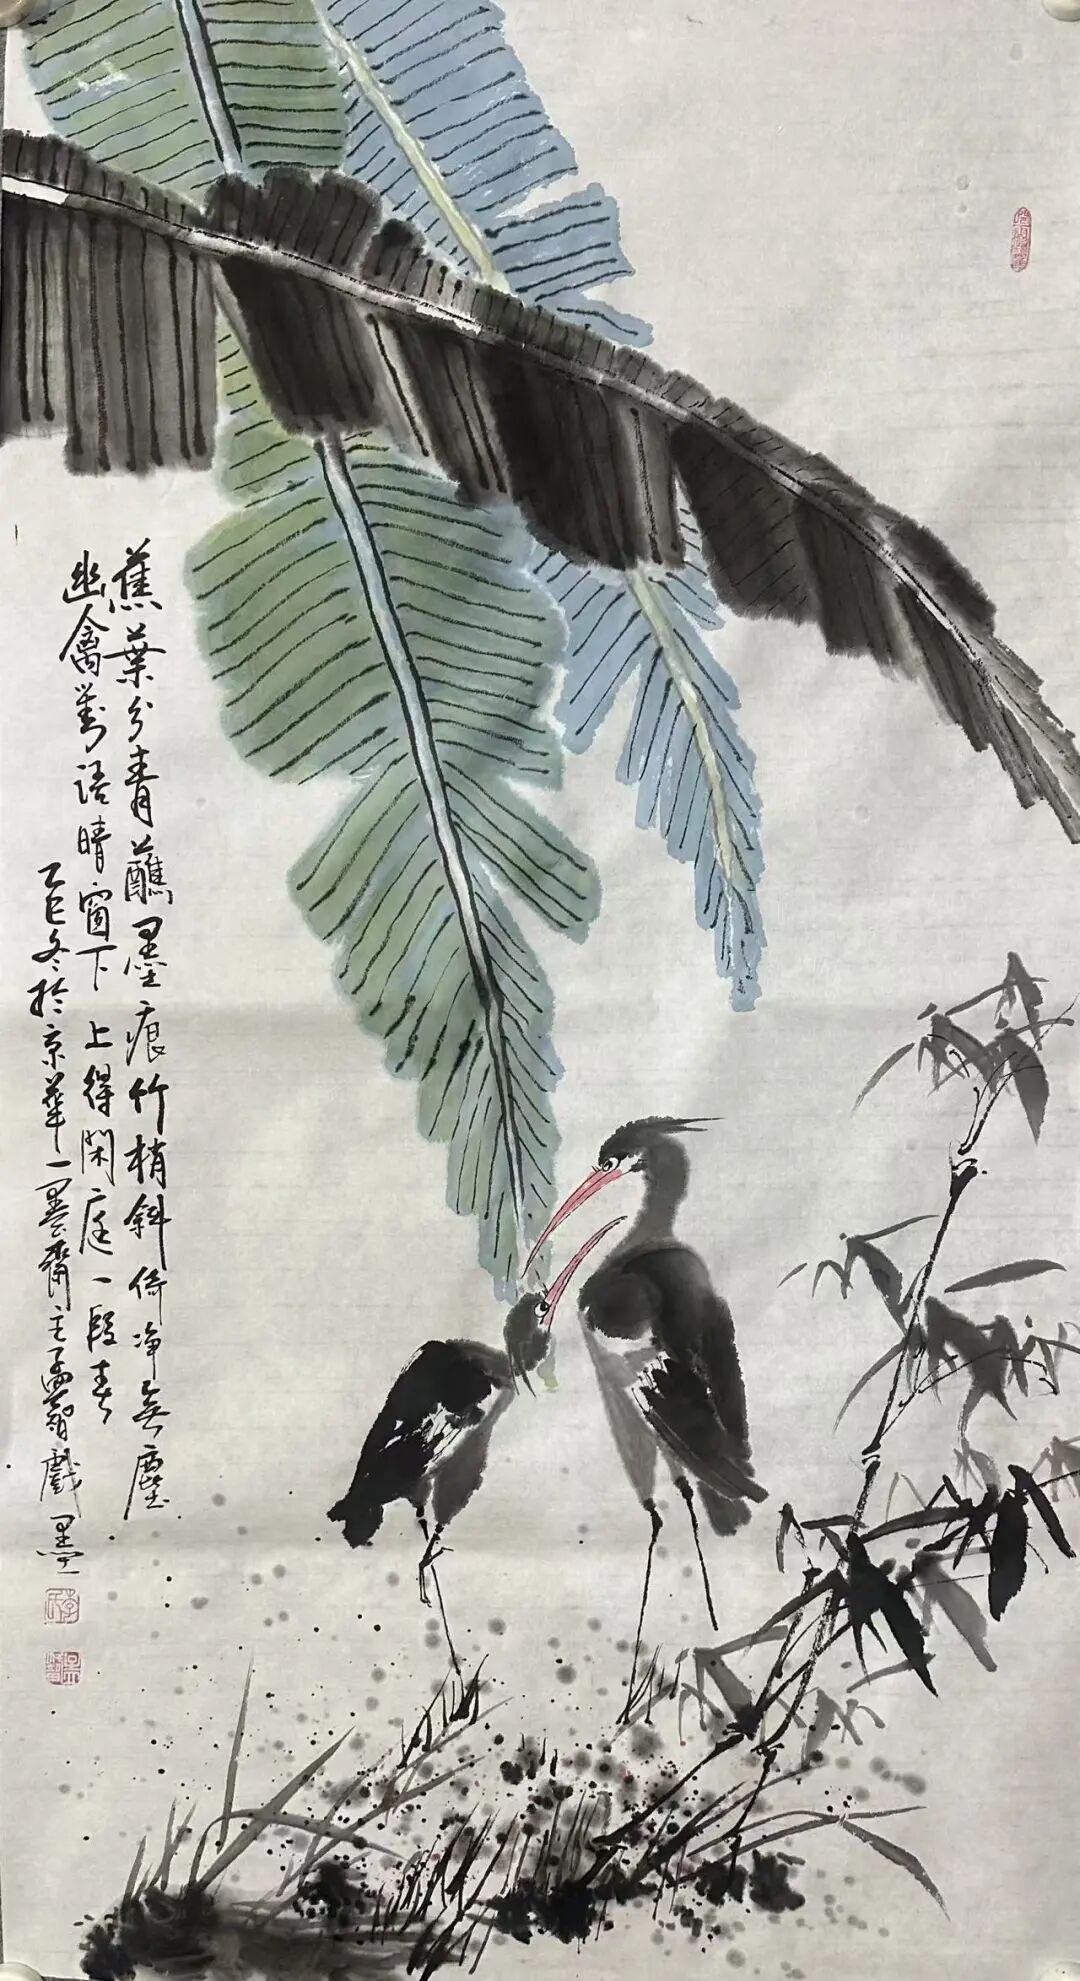 蕉葉分青蘸墨痕竹梢斜倚净無塵
幽禽對語晴窗下上得閑庭一段春
乙巳冬於京華一墨齋主孟智戲墨